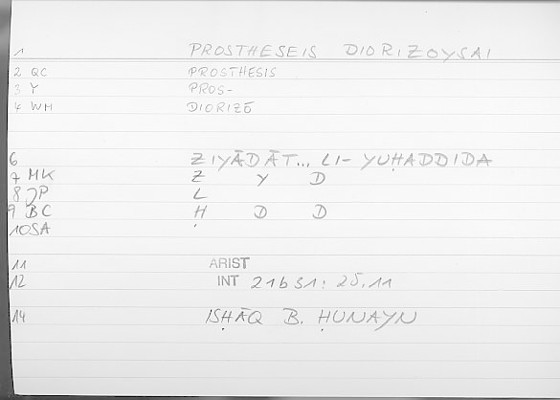 1 PROSTHESEIS DIORIZOYSAI
2 QC PROSTHESIS
3 Y PROS-
4 WH DIORIZĒ
6 ZIYĀDĀT... LI- YUḤADDIDA
7 MK Z Y D
8 JP L
9 BC Ḥ D D
10 SA '
11 ARIST
12 INT 21b31; 25,11
14 ISḤĀQ B. ḤUNAYN